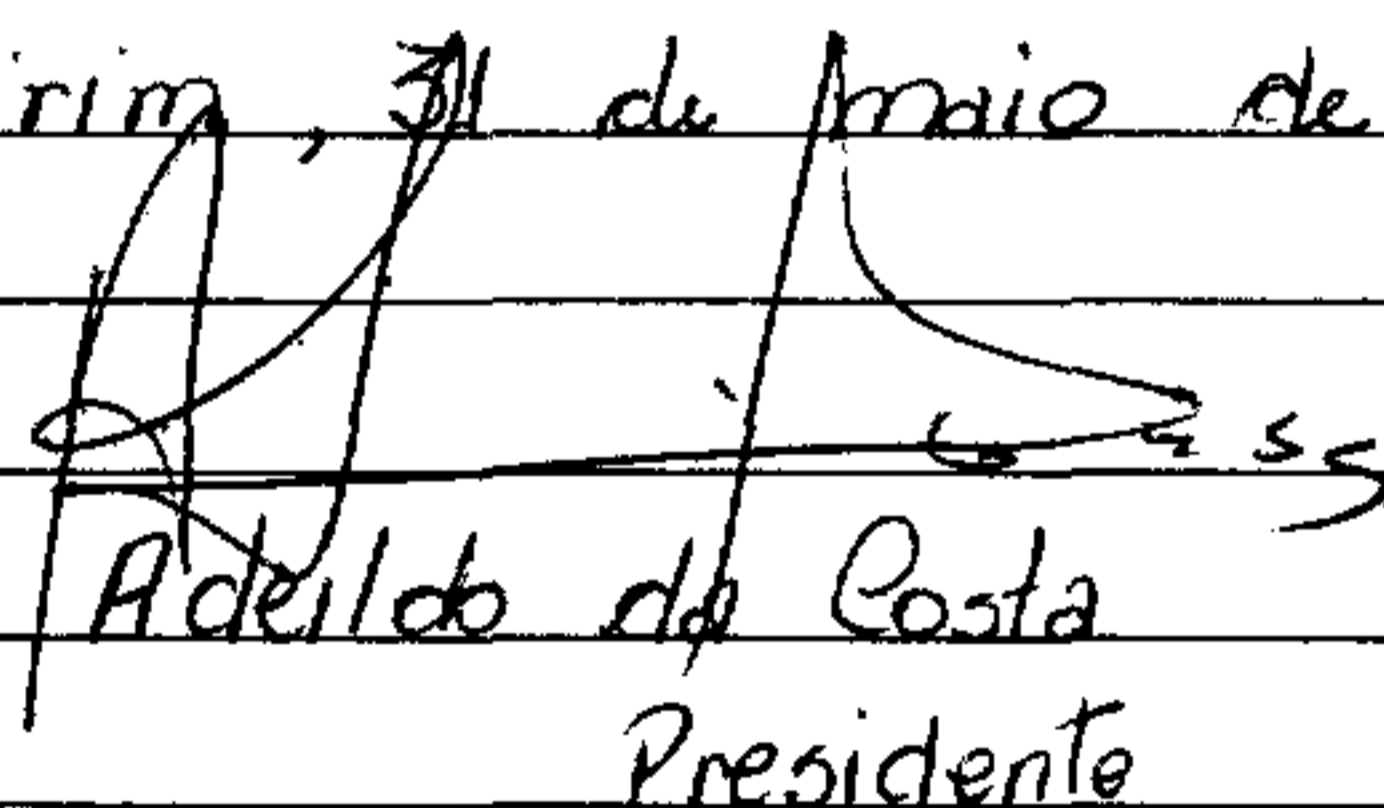 rim, 31 de maio de
Adeildo da Costa
Presidente